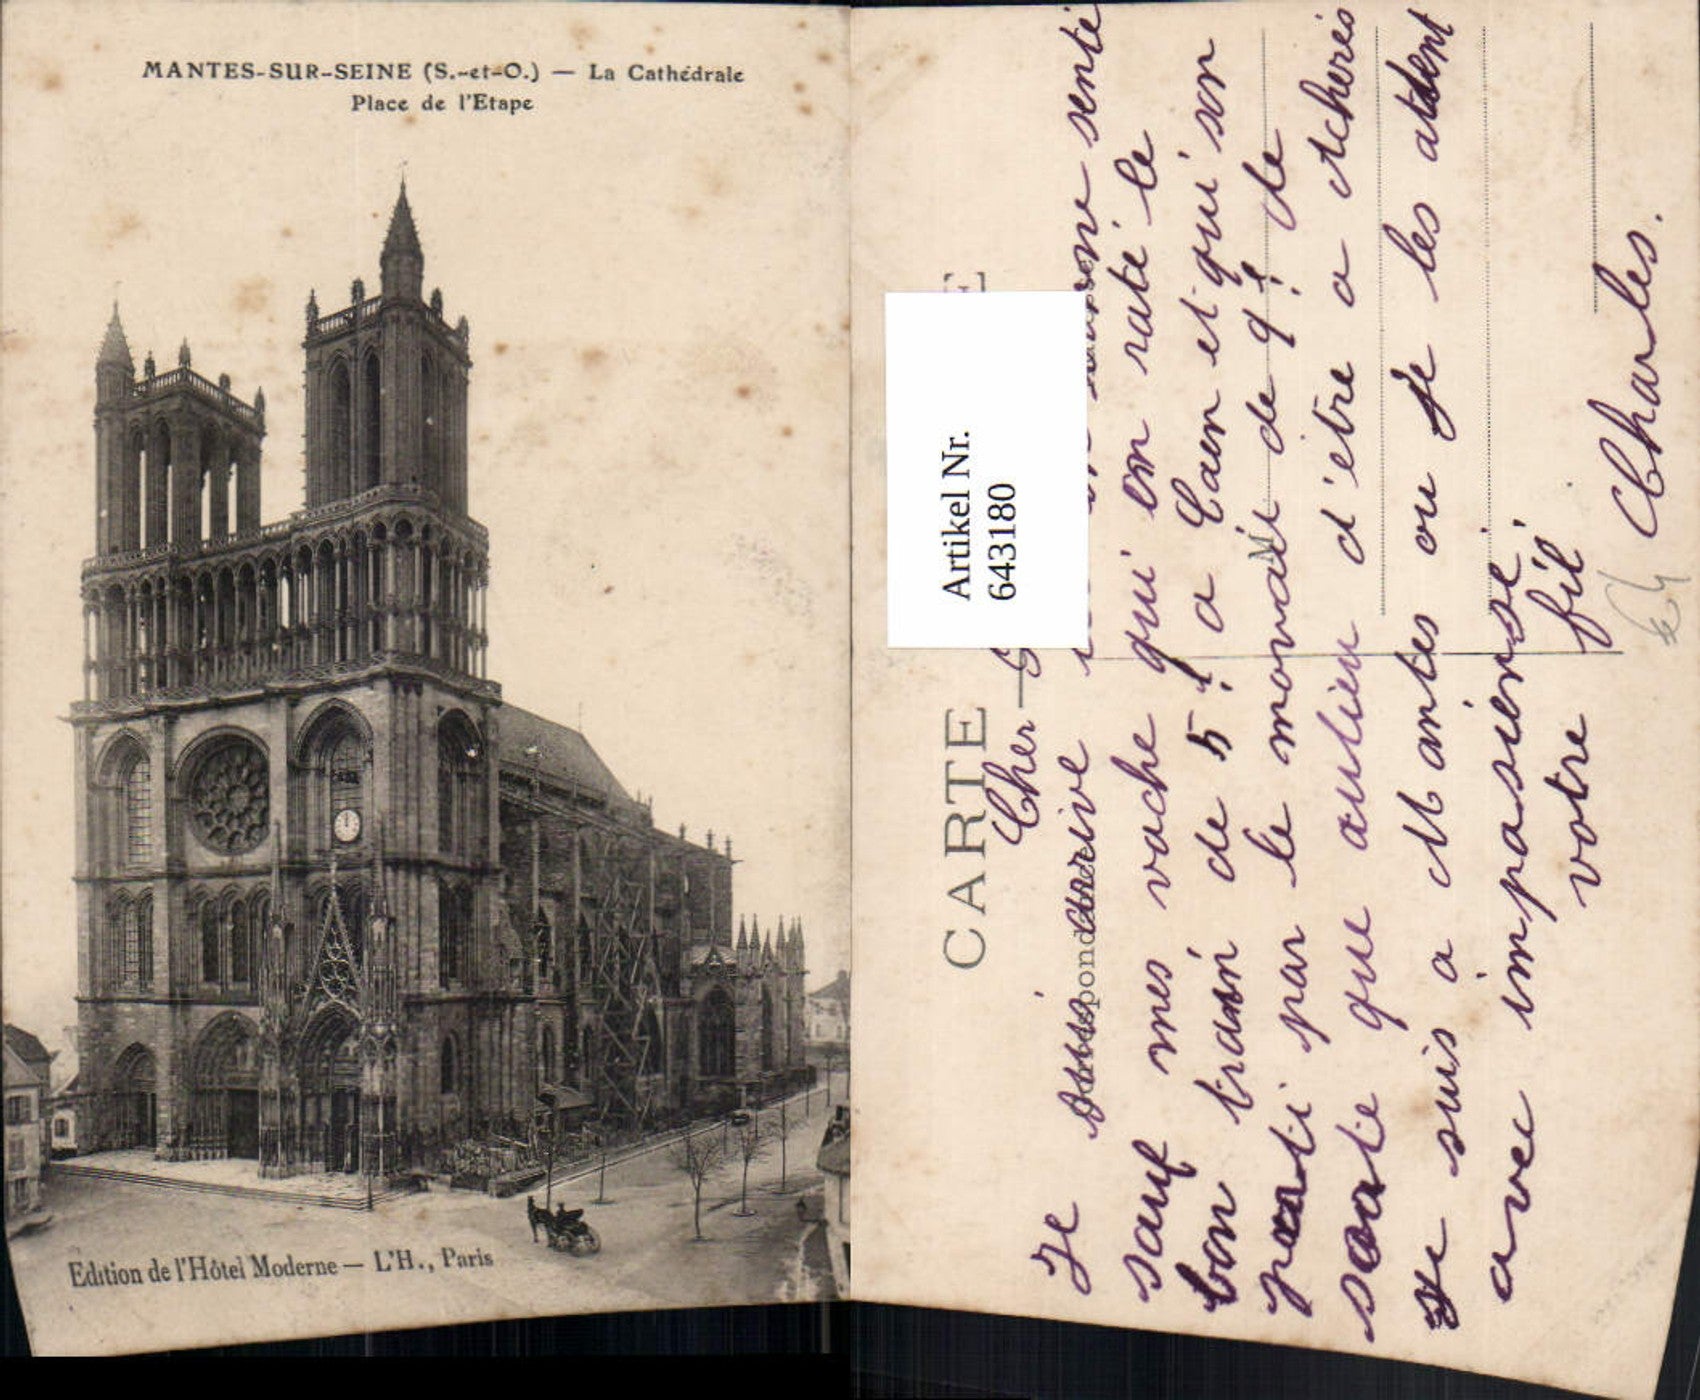 MANTES-SUR-SEINE (S.-et-O.) — La Cathédrale
Place de l'Etape
Edition de l'Hôtel Moderne — L'H., Paris
Artikel Nr.
643180
CARTE
Cher
Je suis arrive en bonne senté
sauf mes vache qui on raté le
bon train de 5! a Caen et qui son
parti par le mauvait de 9! de
sorte que aulieu d'être a Achères
je suis a Mantes ou je les atdent
avec impasiense
votre fil
Charles.